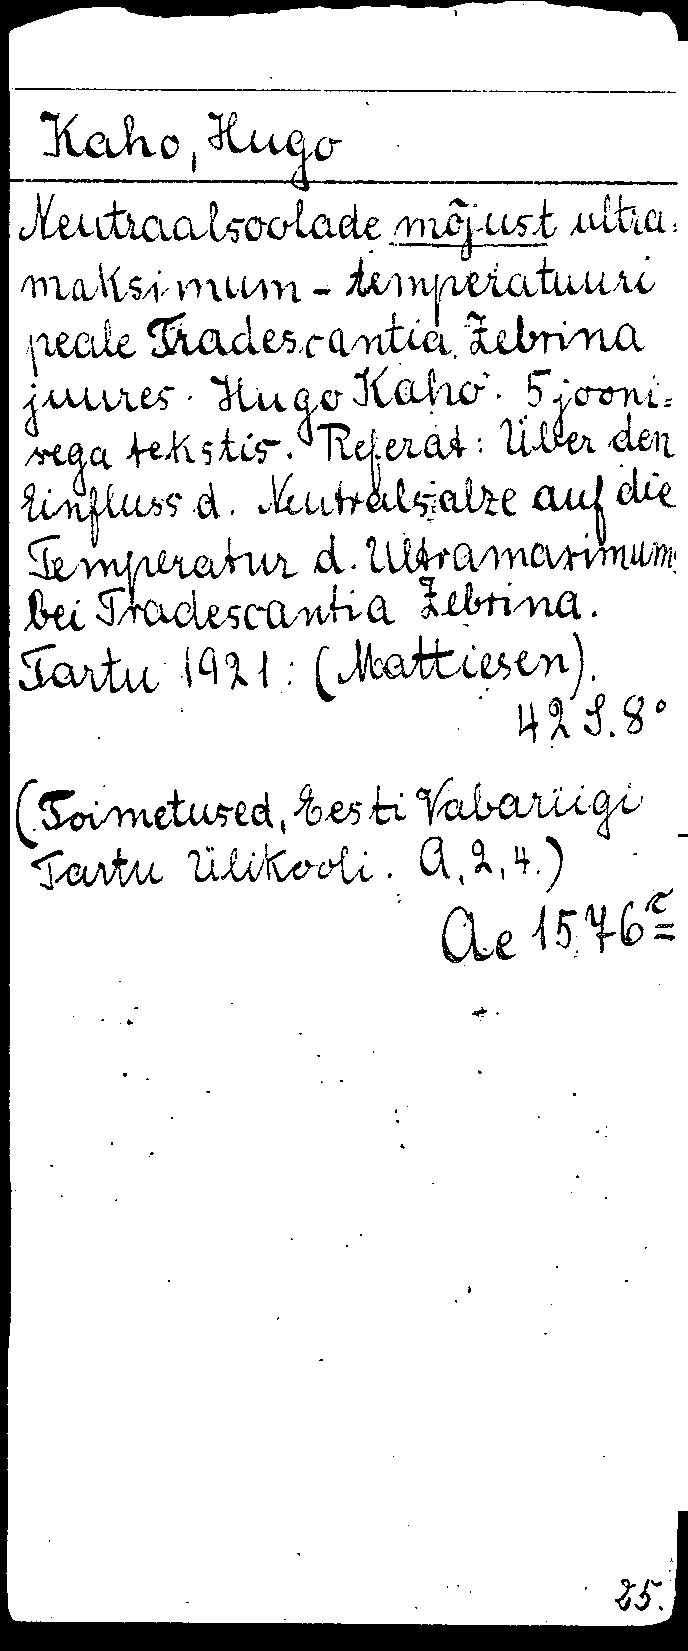 Kaho, Hugo
Neutraalsoolade mõjust ultra=
maksimum - temperatuuri
peale Tradescantia Zebrina
juures. Hugo Kaho. 5 jooni=
sega tekstis. Referat: Über den
Einfluss d. Neutralsalze auf die
Temperatur d. Ultramaximums
bei Tradescantia Zebrina.
Tartu 1921: (Mattiesen).
42 S. 8°
(Toimetused, Eesti Vabariigi
Tartu Ülikooli. A, 2, 4.)
Ae 1576 c
25.